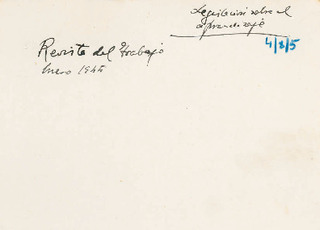 Legislación sobre el
aprendizaje
4/8/5
Revista del Trabajo
Enero 1945